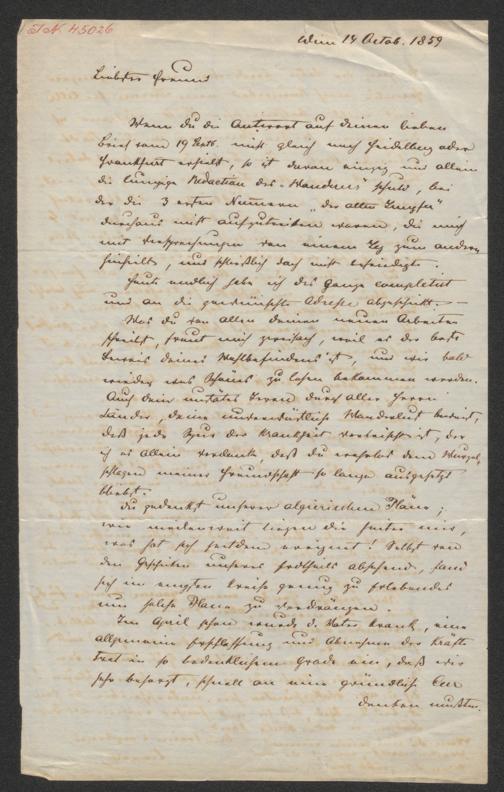 I. N. 45026
Wien 14 Octob. 1859
Liebster Freund
Wenn du die Antwort auf deinen lieben
Brief vom 19 Sept. nicht gleich nach Heidelberg oder
Frankfurt erhielt, so ist daran einzig und allein
die lumpige Redaction des Wanderers schuld, bei
der die 3 ersten Numern „der alten Jungfer“
durchaus nicht aufzutreiben waren, die mich
mit Versprechungen von einem Tag zum andern
hinhielt, und schließlich doch nicht befriedigte.
Heute endlich habe ich das Ganze completirt
und an die gewünschte Adresse abgeschickt. —
Was du von allen deinen neuen Arbeiten
schreibst, freut mich zweifach, weil es der beste
Beweis deines Wohlbefindens ist, und wir bald
wieder was Schönes zu lesen bekommen werden.
Auch dein mutatus Herren durch aller Herren
Länder, deine unverwüstliche Wanderlust beweist,
daß jede Spur der Krankheit verwischt ist, der
ich es allein verdanke, daß du wehrlos den
schlägen meiner Freundschaft so lange ausgesetzt
bliebst.
Du gedenkst unserer algierischen Pläne;
wie meilenweit liegen die hinter mir,
was hat sich seitdem ereignet! Selbst von
den Geschicken unseres Erdtheils absehend, fand
sich im engsten Kreise genug zu Erlebendes
um solche Pläne zu verdrängen.
Im April schon wurde d. Vater krank, eine
allgemeine Erschlaffung und Abnahme der Kräfte
trat in so bedenklichem Grade ein, daß wir
sehr besorgt, schnell an eine gründliche Cur
denken mußten.